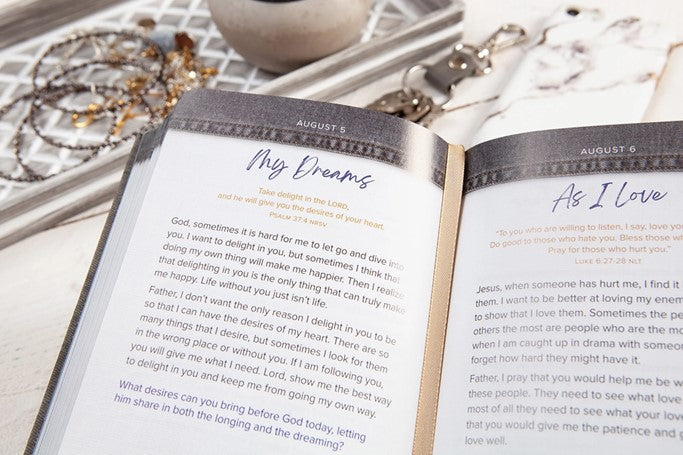 AUGUST 5
My Dreams
Take delight in the LORD,
and he will give you the desires of your heart.
PSALM 37:4 NRSV
God, sometimes it is hard for me to let go and dive into
you. I want to delight in you, but sometimes I think that
doing my own thing will make me happier. Then I realize
that delighting in you is the only thing that can truly make
me happy. Life without you just isn't life.
Father, I don't want the only reason I delight in you to be
so that I can have the desires of my heart. There are so
many things that I desire, but sometimes I look for them
in the wrong place or without you. If I am following you,
you will give me what I need. Lord, show me the best way
to delight in you and keep me from going my own way.
What desires can you bring before God today, letting
him share in both the longing and the dreaming?
AUGUST 6
As I Love
"To you who are willing to listen, I say, love you
Do good to those who hate you. Bless those wh
Pray for those who hurt you."
LUKE 6:27-28 NLT
Jesus, when someone has hurt me, I find it
them. I want to be better at loving my enem
to show that I love them. Sometimes the pe
others the most are people who are the mo
when I am caught up in drama with someon
forget how hard they might have it.
Father, I pray that you would help me be w
these people. They need to see what love
most of all they need to see what your love
that you would give me the patience and g
love well.